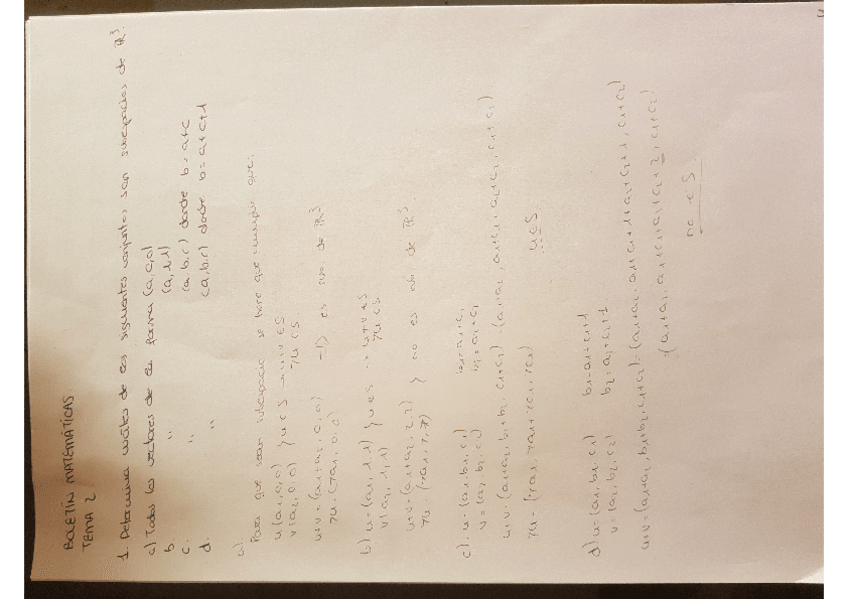 BOLETÍN MATEMÁTICAS
TEMA 2
1. Determina cuáles de los siguientes conjuntos son subespacios de R³.
a) Todos los vectores de la forma (a,0,0)
b. " (a,1,1)
c. " (a,b,c) donde b=a+c
d. " (a,b,c) donde b=a+c+1
a).
Para que sean subespacio se tiene que cumplir que:
u(a1,0,0) } u∈S → u+v∈S
v(a2,0,0) λu∈S
u+v=(a1+a2,0,0) → es sub de R³
λu=(λa1,0,0)
b) u=(a1,1,1) } u∈S → u+v∈S
v(a2,1,1) λu∈S
u+v=(a1+a2,2,2) } no es sub de R³
λu (λa1,λ,λ)
c). u=(a1,b1,c1) b1=a1+c1
v=(a2,b2,c2) b2=a2+c2
u+v=(a1+a2,b1+b2,c1+c2)=(a1+a2,a1+c1+a2+c2,c1+c2)
λu=(λa1,λa1+λc1,λc1) u∈S
d) u=(a1,b1,c1) b1=a1+c1+1
v=(a2,b2,c2) b2=a2+c2+1
u+v=(a1+a2,b1+b2,c1+c2)=(a1+a2,a1+c1+1+a2+c2+1,c1+c2)
=(a1+a2,a1+c1+a2+c2+2,c1+c2)
no es S.